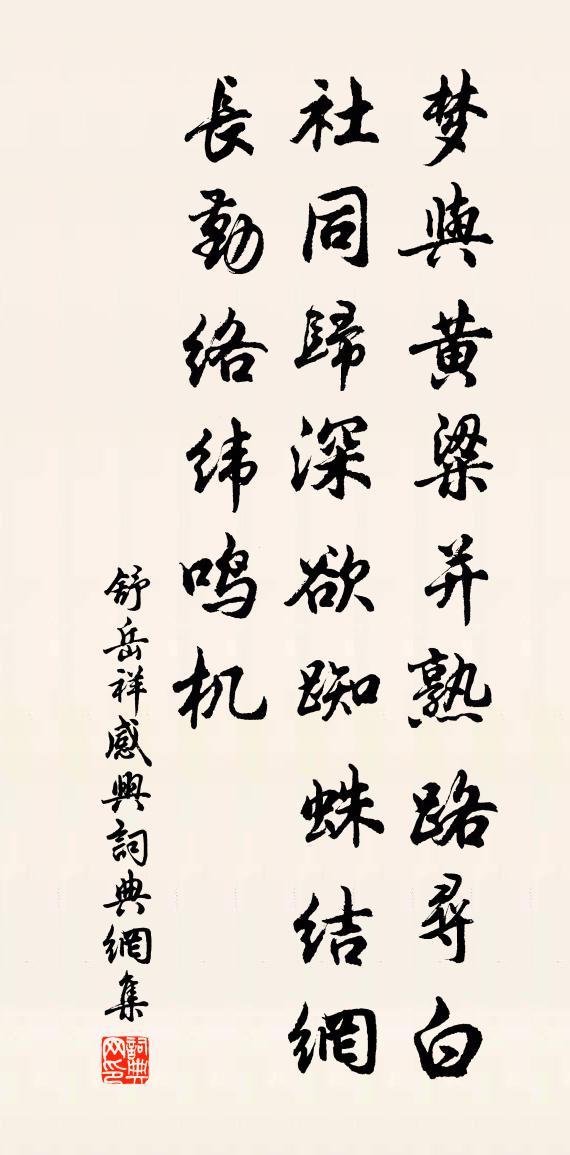 梦與黄粱并熟路尋白
社同歸深欲踟蛛结網
長勤络纬鸣机
舒岳祥感興詞典網集
詞典网印